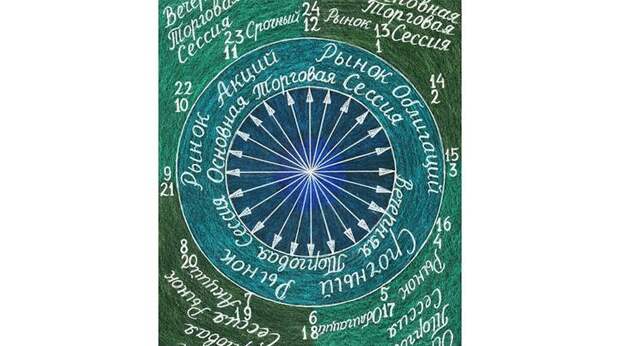 Вечер
Торговая
Сессия
Срочный
24
12
Рынок
Торговая
Сессия
13
1
23
11
14
2
22
10
15
3
9
21
16
4
8
20
5
17
7
19
6
18
Рынок Акций
Рынок Облигаций
Основная Торговая Сессия
Вечерняя Торговая Сессия
Срочный Рынок
Рынок
Сессия
Облигаций
Рынок
Акций
Сессия